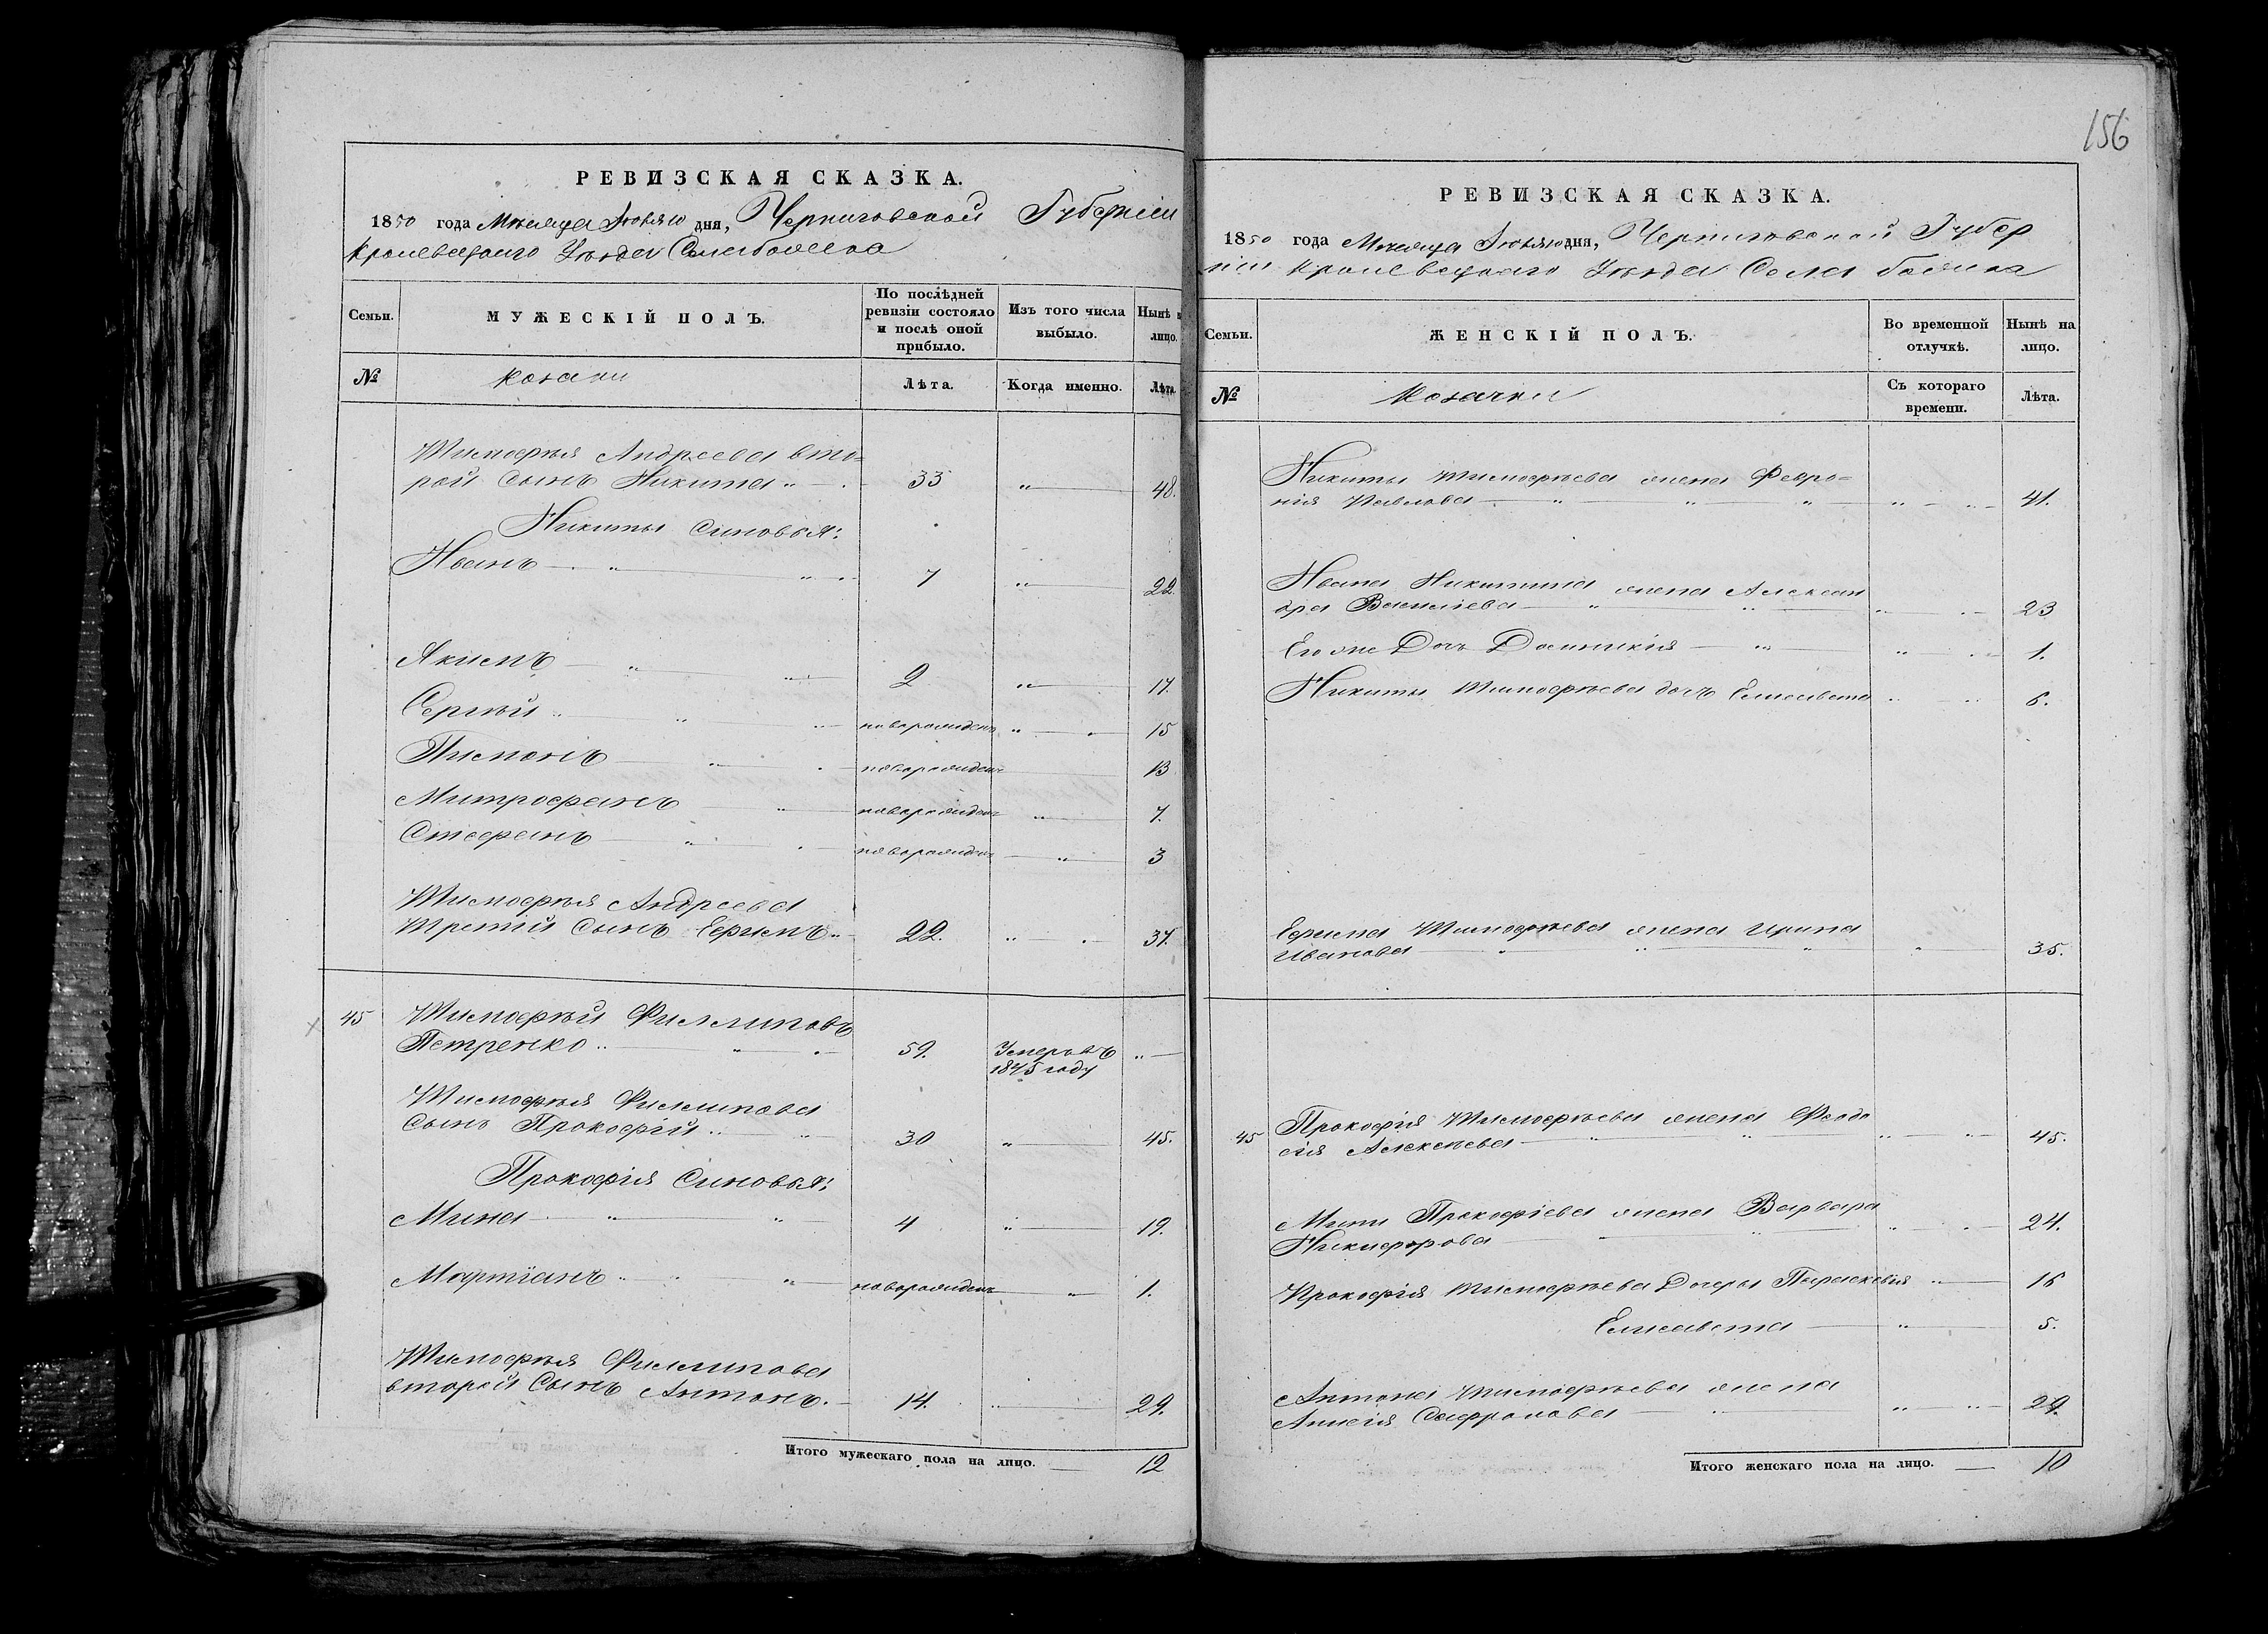 РЕВИЗСКАЯ СКАЗКА.
1850 года Мѣсяца Іювляю дня, Черниговской Губерніи
Кролевецкаго Уѣзда Села
Семьи.
МУЖЕСКІЙ ПОЛЪ.
По послѣдней ревизіи состояло и послѣ оной прибыло.
Изъ того числа выбыло.
Нынѣ в лицо.
№
Козаки
Лѣта.
Когда именно.
Лѣта
Тимофѣя Андреева вто=
рой Сынъ Никита 33 48.
Никиты Синовья:
Иванъ 7 22.
Якимъ 2 17.
Сергѣй новорожденъ 15
Пимонъ новорожденъ 13
Митрофанъ новорожденъ 7.
Стефанъ новорожденъ 3
Тимофѣя Андреева
Третій Сынъ Ефимъ 22. 37.
45 Тимофѣй Филиповъ
Петренко 59. Умеръ въ
1845 году
Тимофѣя Филипова
Сынъ Прокофій 30 45.
Прокофія Синовья:
Мина 4 19.
Мартіанъ новорожденъ 1.
Тимофѣя Филипова
второй Сынъ Антонъ. 14. 29.
Итого мужескаго пола на лицо. 12
156
РЕВИЗСКАЯ СКАЗКА.
1850 года Мѣсяца Іювляю дня, Черниговской Губер
ніи Кролевецкаго Уѣзда Села
Семьи.
ЖЕНСКІЙ ПОЛЪ.
Во временной отлучкѣ.
Нынѣ на лицо.
№
Козачки
Съ котораго времени.
Лѣта.
Никиты Тимофѣева жена Февро=
нія Павлова 41.
Ивана Никитина жена Александ
дра Василіева 23
Его же Дочъ Домникія 1.
Никиты Тимофѣева дочъ Елисавета 6.
Ефима Тимофѣева жена Ирина
Иванова 35.
45 Прокофія Тимофѣева жена Феодо
сія Алексѣева 45.
Мини Прокофіева жена Варвара
Никифорова 24.
Прокофія Тимофѣева Дочеры Параскевія 16
Елисавета 5.
Антона Тимофѣева жена
Анисія Сафронова 29.
Итого женскаго пола на лицо. 10